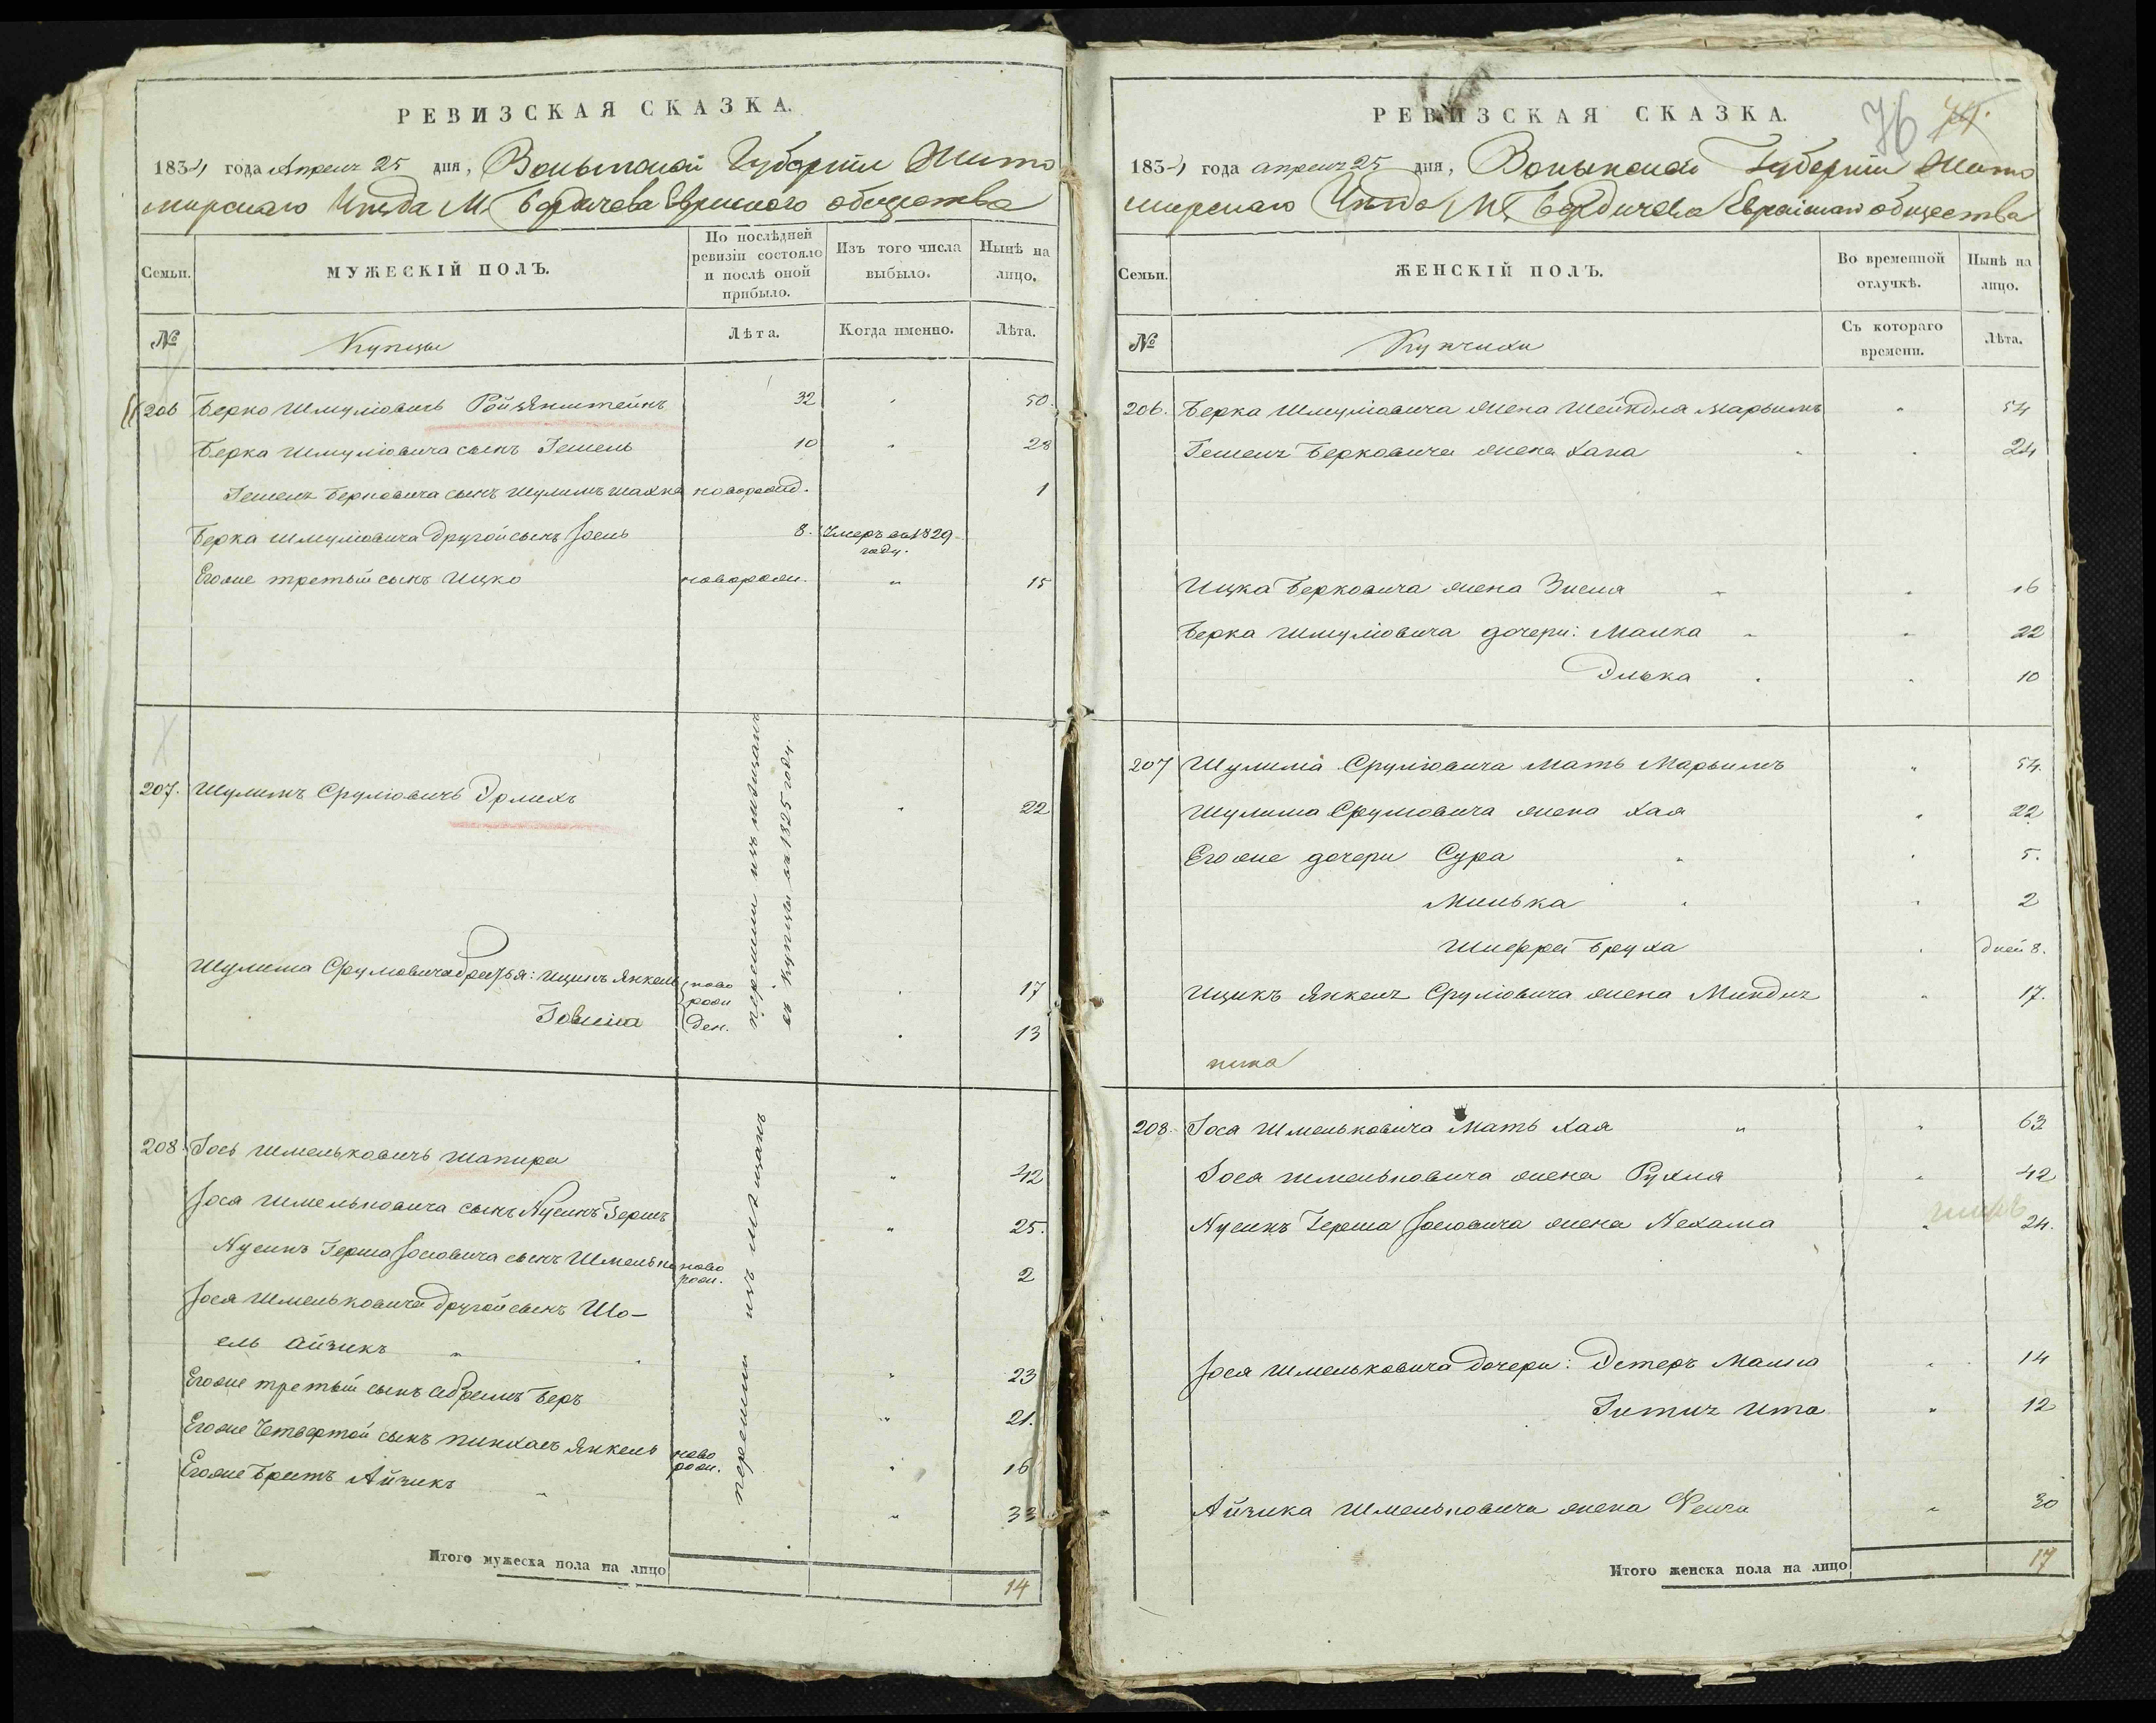 РЕВИЗСКАЯ СКАЗКА.
1834 года Апреля 25 дня, Волынской Губернiи Жито
мирскаго Уѣзда М. Бердичева Еврейского общества
Семьи.
МУЖЕСКIЙ ПОЛЪ.
По послѣдней ревизiи состояло и послѣ оной прибыло.
Изъ того числа выбыло.
Нынѣ на лицо.
№
Купцы
Лѣта.
Когда именно.
Лѣта.
206 Берко Шмулiовичъ 32 50.
Берка Шмулiовича сынъ Гешель 10 28
Гешеля Берковича сынъ Шулимъ Шахна новорожд. 1
Берка Шмулiовича другой сынъ Iоель 8. Умеръ въ 1829 году.
Егоже третьiй сынъ Ицко новорож. 15
207. Шулимъ Срулiовичъ Эрлихъ 22
Шулима Срулiовича братья: Ицикъ Янкель ново 17
рож
ден. 13
перешли изъ мѣщанъ
въ купцы въ 1825 году.
208 Iось Шмельковичъ Шапира 42
Iося Шмельковича сынъ Нусинъ Гершъ 25.
Нусинъ Герша Iосiовича сынъ Шмелька ново рож. 2
Iося Шмельковича другой сынъ Шо-
ель Айзикъ 23
Егоже третьiй сынъ Абрамъ Беръ 21.
Егоже Четвертой сынъ Пинхасъ Янкель ново рож. 16
Егоже Братъ Айзикъ 33
перешли изъ мѣщанъ
Итого мужеска пола на лицо 14
РЕВИЗСКАЯ СКАЗКА.
76
1834 года апреля 25 дня, Волынской Губернiи Жито
мирскаго Уѣзда М. Бердичева Еврейскаго общества
Семьи.
ЖЕНСКIЙ ПОЛЪ.
Во временной отлучкѣ.
Нынѣ на лицо.
№
Купчихи
Съ котораго времени.
Лѣта.
206. Берка Шмулiовича жена Шейндля Марьимъ 54
Гешеля Берковича жена Хана 24
Ицка Берковича жена Зисля 16
Берка Шмулiовича дочери: Малка 22
Элька 10
207 Шулима Срулiовича Мать Марьимъ 54.
Шулима Срулiовича жена Хая 22
Егоже дочери Сура 5.
Минька 2
Шифра Бруха дней 8.
Ицикъ Янкеля Срулiовича жена Миндля 17.
208. Iося Шмельковича Мать Хая 63
Iося Шмельковича жена Рухля 42
Нусинъ Герша Iосiовича жена Нехама 24.
Iося Шмельковича дочери: Эстеръ Малка 14
Гитля Ита 12
Айзика Шмельковича жена Фейга 30
Итого женска пола на лицо 17